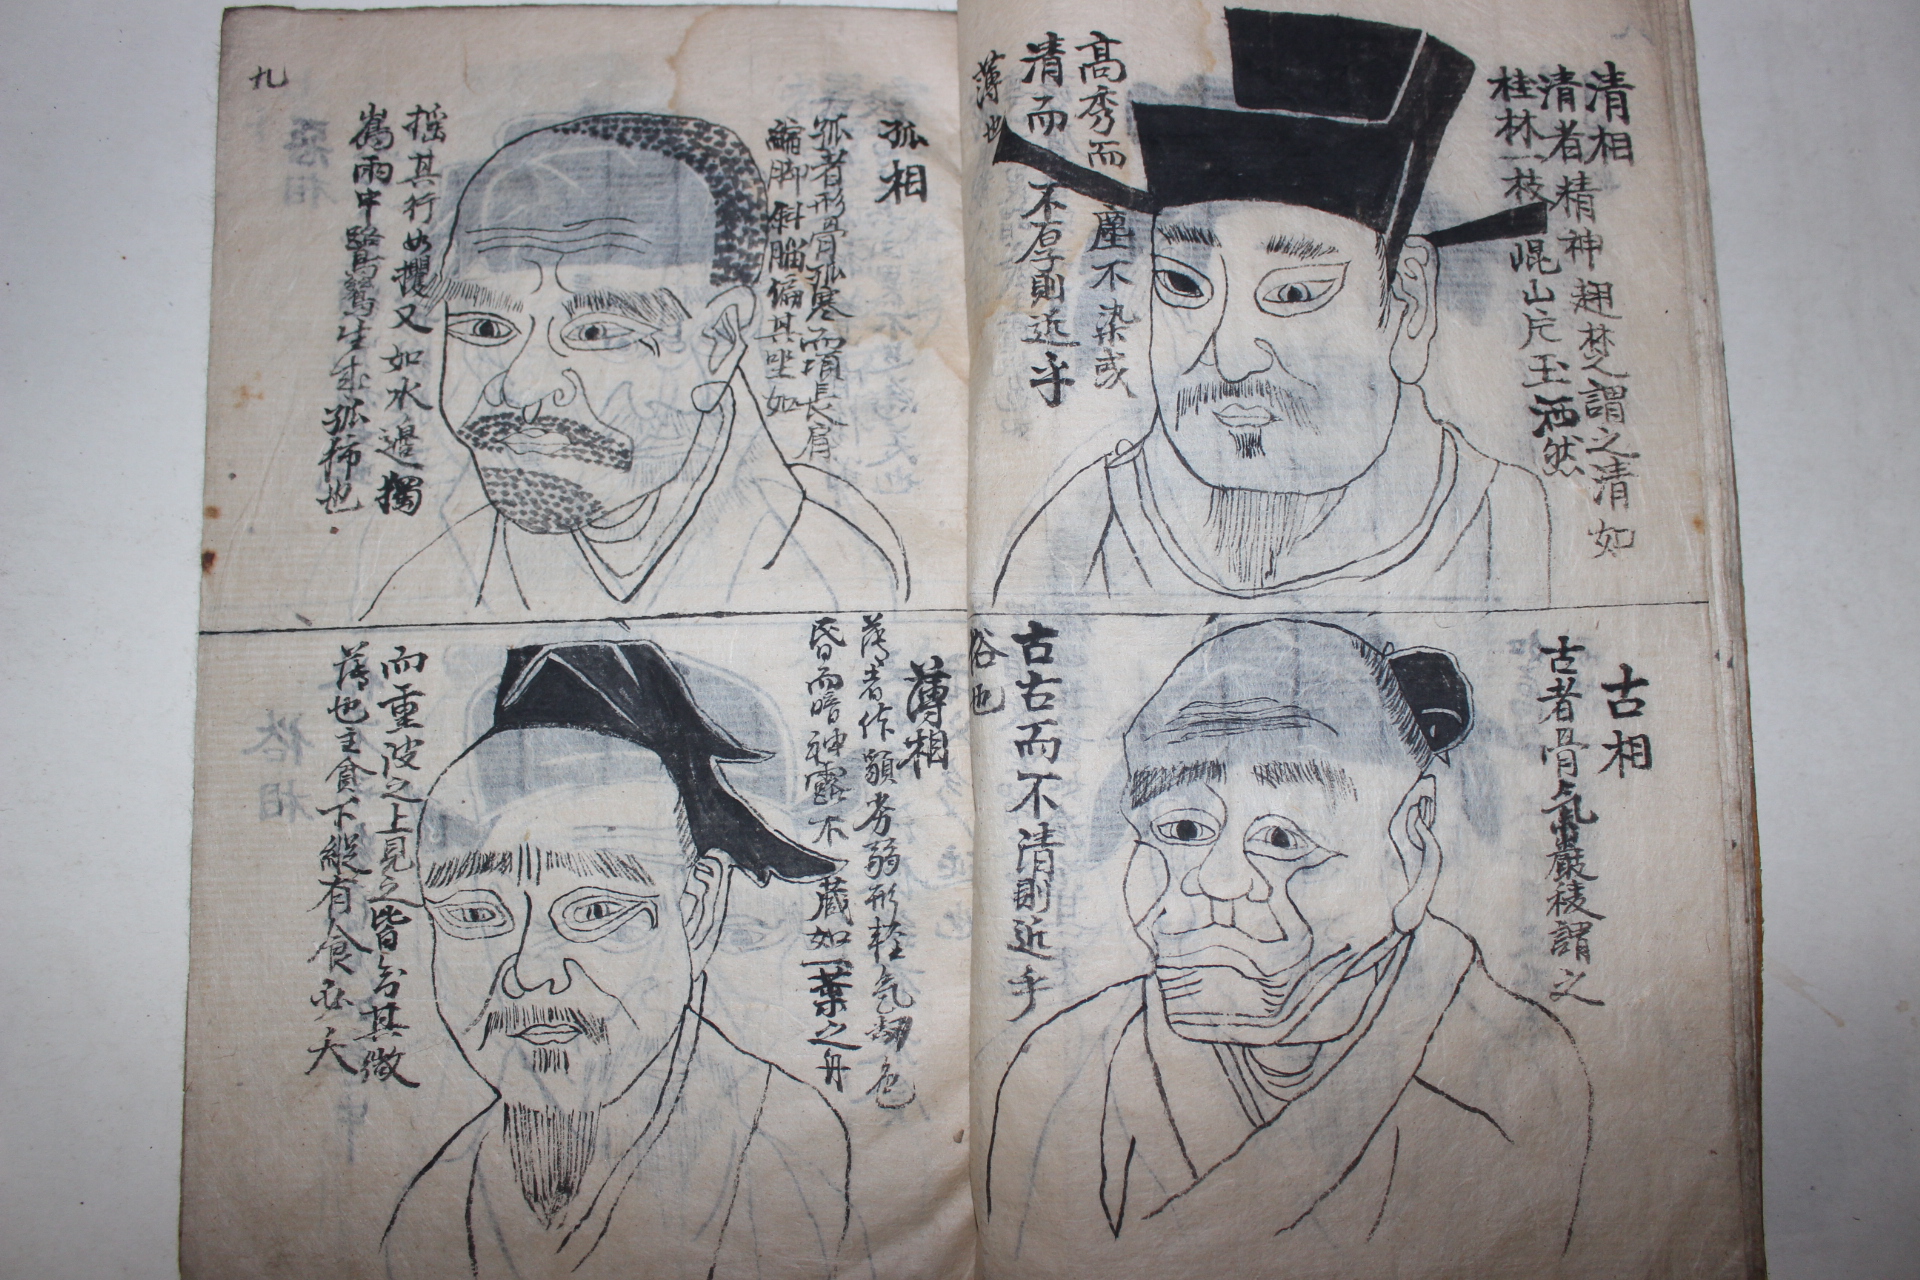 清相
清者精神翹楚謂之清如
桂林一枝崐山片玉洒然
高秀而塵不染或
清而不厚則近乎
薄也
古相
古者骨气巖稜謂之
古古而不清則近乎
俗也
孤相
孤者形骨孤寒而項長肩
縮脚斜腦偏其坐如
搖其行如攫又如水邊獨
雨中鷺鷥生成孤
也
薄相
薄者作㒵劣弱形輕气刼色
昏而暗神露不藏如一葉之舟
而重波之上見之皆
其微
薄也主貧下縱有食必夭
九